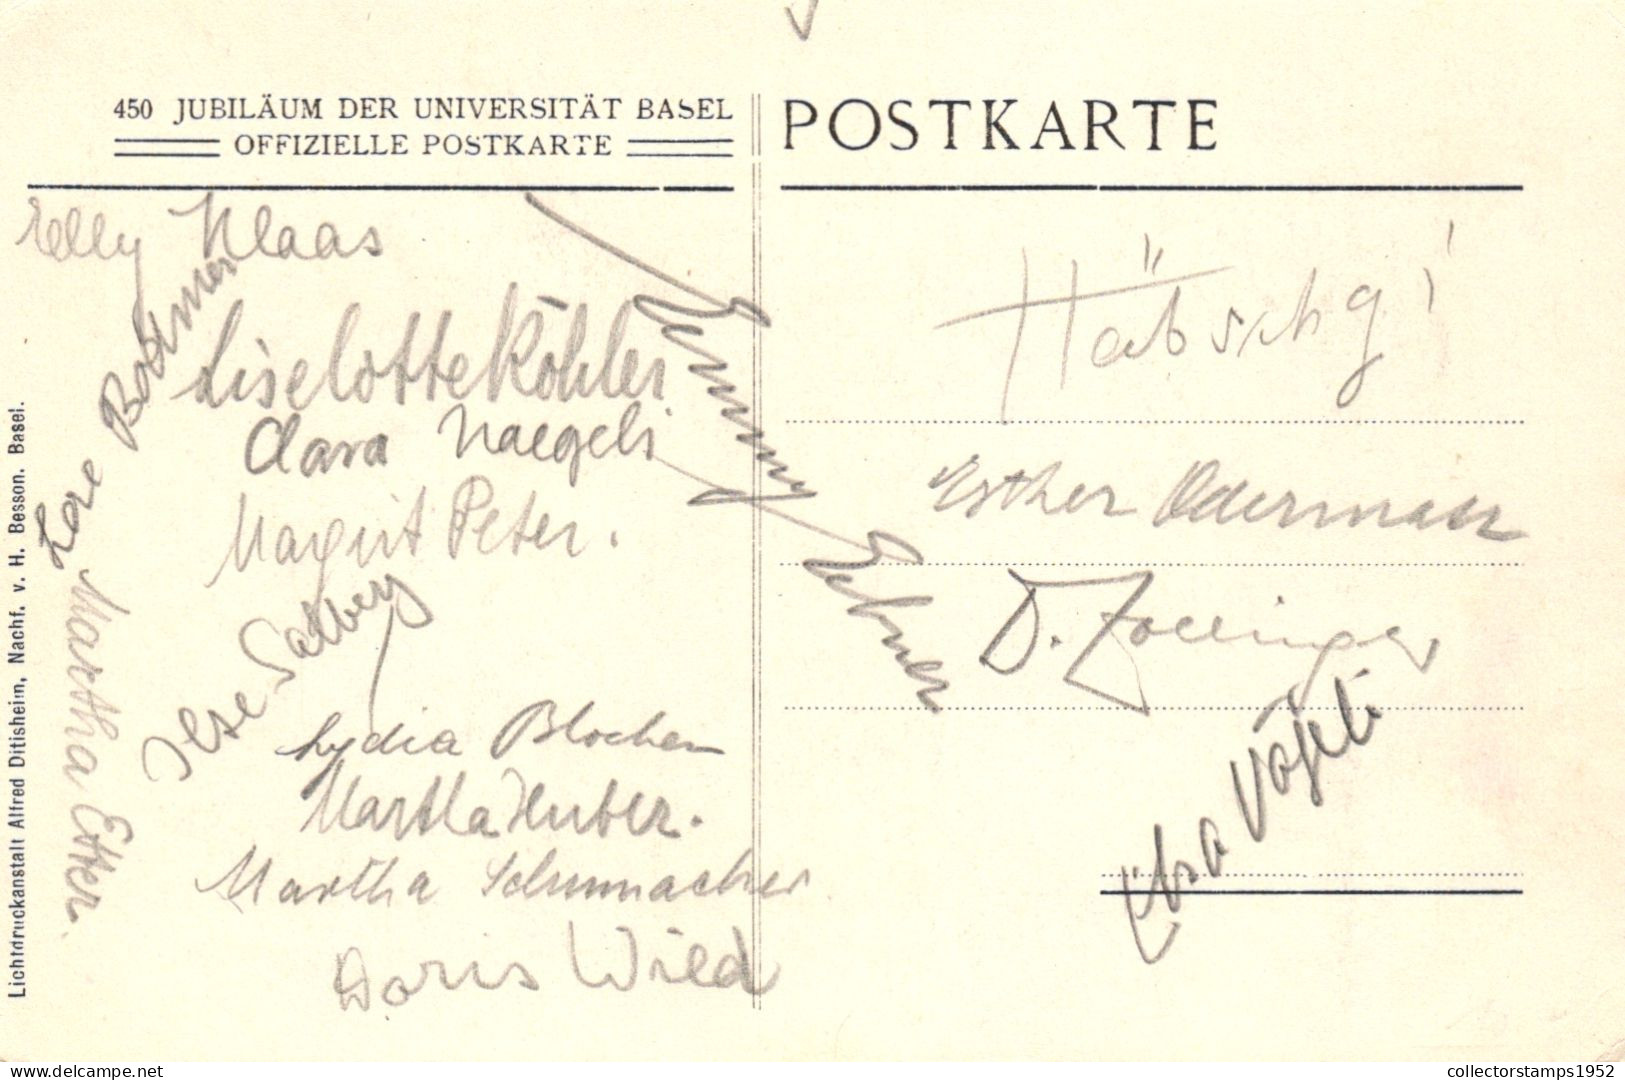 450 JUBILÄUM DER UNIVERSITÄT BASEL
OFFIZIELLE POSTKARTE
POSTKARTE
Elly Klaas
Lore Bodmer
Liselotte Köhler
Clara Naegeli
Margrit Peter.
Martha Etter.
Ilse Salberg
Lydia Blocher
Martha Huber.
Martha Schumacher
Doris Wild
Emmy
Hätschg!
Esther Odermatt
D. Zollinger
Elsa Vögeli
Lichtdruckanstalt Alfred Ditisheim, Nachf. v. H. Besson. Basel.
delcampe.net
collectorstamps1952